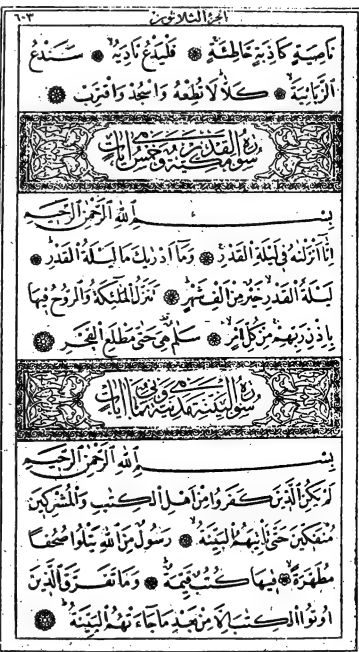 الجزء الثلاثون ٦٠٣
نَاصِيَةٍ كَاذِبَةٍ خَاطِئَةٍ فَلْيَدْعُ نَادِيَهُ سَنَدْعُ
الزَّبَانِيَةَ كَلَّا لَا تُطِعْهُ وَاسْجُدْ وَاقْتَرِبْ
سورة القدر مكية وهي خمس ايات
بِسْمِ اللهِ الرَّحْمٰنِ الرَّحِيمِ
اِنَّا اَنْزَلْنٰهُ فِي لَيْلَةِ الْقَدْرِ وَمَا اَدْرٰيكَ مَا لَيْلَةُ الْقَدْرِ
لَيْلَةُ الْقَدْرِ خَيْرٌ مِنْ اَلْفِ شَهْرٍ تَنَزَّلُ الْمَلٰٓئِكَةُ وَالرُّوحُ فِيهَا
بِاِذْنِ رَبِّهِمْ مِنْ كُلِّ اَمْرٍ سَلٰمٌ هِيَ حَتّٰى مَطْلَعِ الْفَجْرِ
سورة البينة مدنية وهي ثمان ايات
بِسْمِ اللهِ الرَّحْمٰنِ الرَّحِيمِ
لَمْ يَكُنِ الَّذِينَ كَفَرُوا مِنْ اَهْلِ الْكِتٰبِ وَالْمُشْرِكِينَ
مُنْفَكِّينَ حَتّٰى تَأْتِيَهُمُ الْبَيِّنَةُ رَسُولٌ مِنَ اللهِ يَتْلُوا صُحُفًا
مُطَهَّرَةً فِيهَا كُتُبٌ قَيِّمَةٌ وَمَا تَفَرَّقَ الَّذِينَ
اُوتُوا الْكِتٰبَ اِلَّا مِنْ بَعْدِ مَا جَاءَتْهُمُ الْبَيِّنَةُ